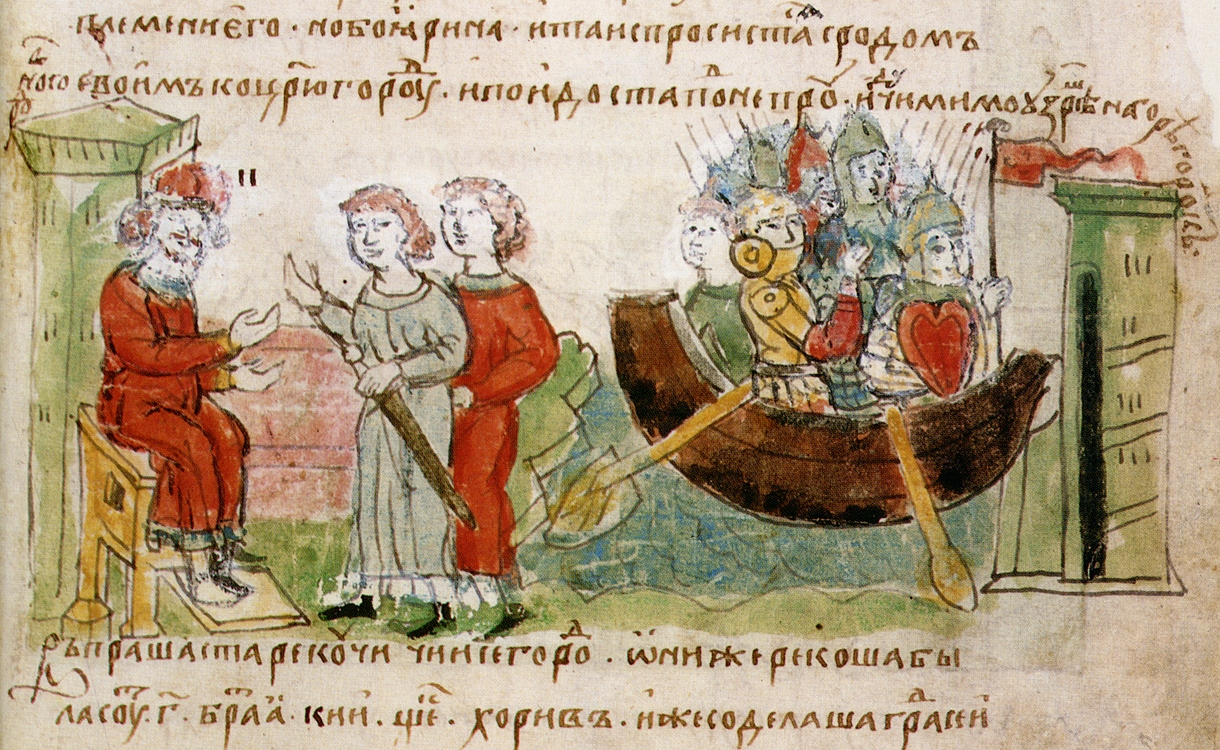 племени его · но боꙗрина · и та испросистаⷭ сродомъ
своимъ ко црюгороⷣу · и поидоста по непроу · идⷹчи мимо узрѣшⷶ на горѣ городокъ ·
въпрашаста рекоучи чии се гороⷣ · ѡни же рекоша бы
ла соуⷮ · г҃ · браⷮа · кии · щеⷦ · хоривъ · иже соделаша граⷣ сеи